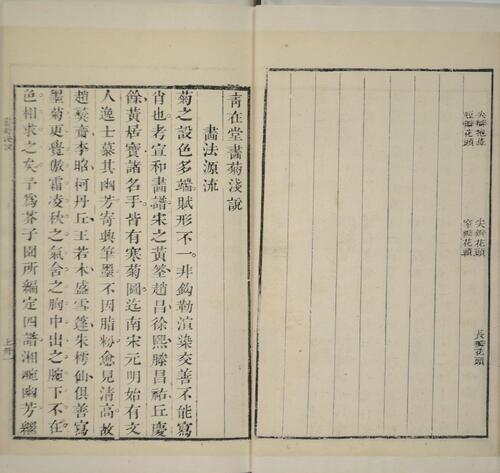 尖瓣抱蕊
短瓣花頭
尖瓣花頭
窄瓣花頭
長瓣花頭
青在堂畵菊淺說
畵法源流
菊之設色多端賦形不一非鈎勒渲染交善不能寫
肖也考宣和畵譜宋之黃筌趙昌徐熙滕昌祐丘慶
餘黃居寶諸名手皆有寒菊圖迄南宋元明始有文
人逸士慕其幽芳寄興筆墨不因脂粉愈見清高故
趙彝齋李昭柯丹丘王若木盛雪篷朱樗仙俱善寫
墨菊更覺傲霜凌秋之氣含之胸中出之腕下不在
色相求之矣予爲芥子園所編定四譜湘畹幽芳繼
上冊一